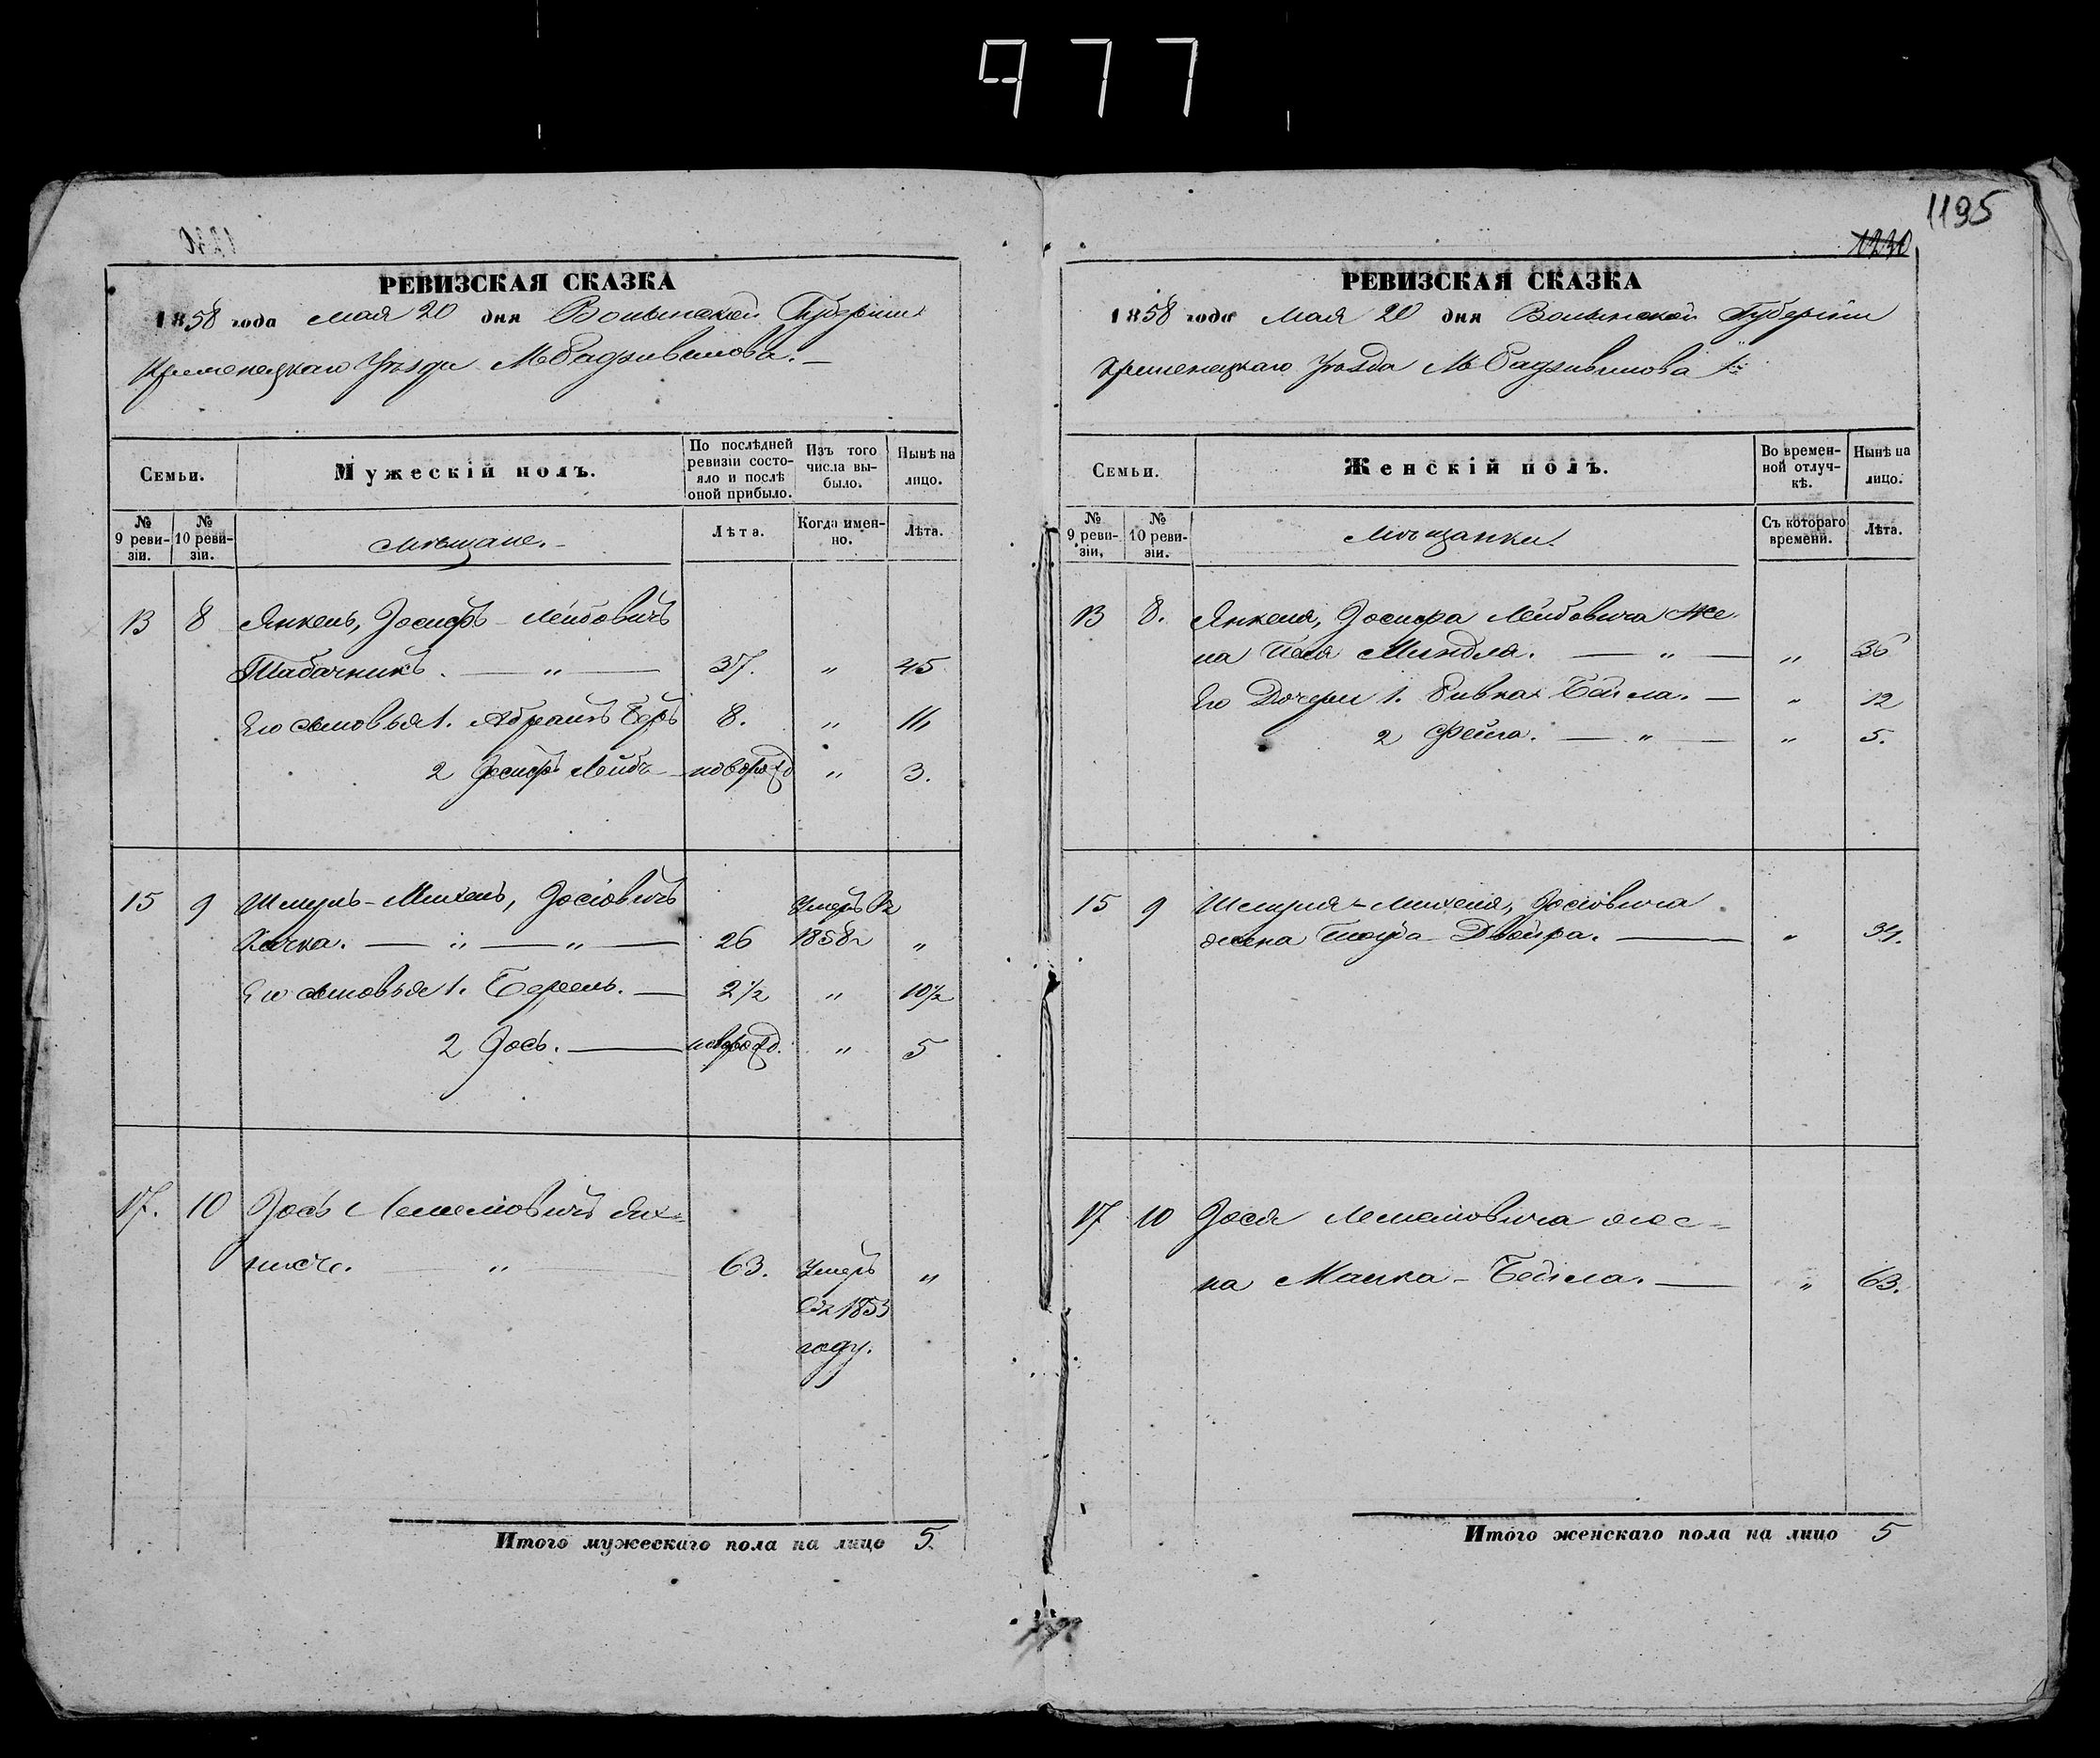 977
1195
1230
РЕВИЗСКАЯ СКАЗКА
1858 года мая 20 дня Волынской Губерніи
Кременецкаго Уѣзда М. Радзивилова.
Семьи.
Мужескій полъ.
По послѣдней ревизіи состояло и послѣ оной прибыло.
Изъ того числа выбыло.
Нынѣ на лицо.
№ 9 ревизіи.
№ 10 ревизіи.
Мѣщане.
Лѣта.
Когда именно.
Лѣта.
13 8 Янкель, Іосифъ Лейбовичъ
Табачникъ. — " — 37. " 45
Его сыновья 1. Абрамъ Беръ 8. " 16
2 Іосифъ Лейбъ новорожд " 3.
15 9 Шмуль-Михель, Іосіовичъ Умеръ Въ
Качка. — " — " — 26 1858 г "
Его сыновья 1. Берель. — 2½ " 10½
2 Іось. — новорожд. " 5
17. 10 Іось
63. Умеръ "
въ 1853
году.
Итого мужескаго пола на лицо 5.
РЕВИЗСКАЯ СКАЗКА
1858 года Мая 20 дня Волынской Губерніи
Кременецкаго Уѣзда М. Радзивилова
Семьи.
Женскій полъ.
Во временной отлучкѣ.
Нынѣ на лицо.
№ 9 ревизіи,
№ 10 ревизіи.
Мѣщанки.
Съ котораго времени.
Лѣта.
13 8. Янкеля, Іосифа Лейбовича Же-
на Миндля. — " — " 36
Его Дочери 1. Ривка Бейла. — " 12
2 Фейга. — " — " 5.
15 9 Шмуля-Михеля, Іосіовича
жена Двойра. — " 31.
17 10 Іося же-
на Малка-Бейла. — " 63.
Итого женскаго пола на лицо 5